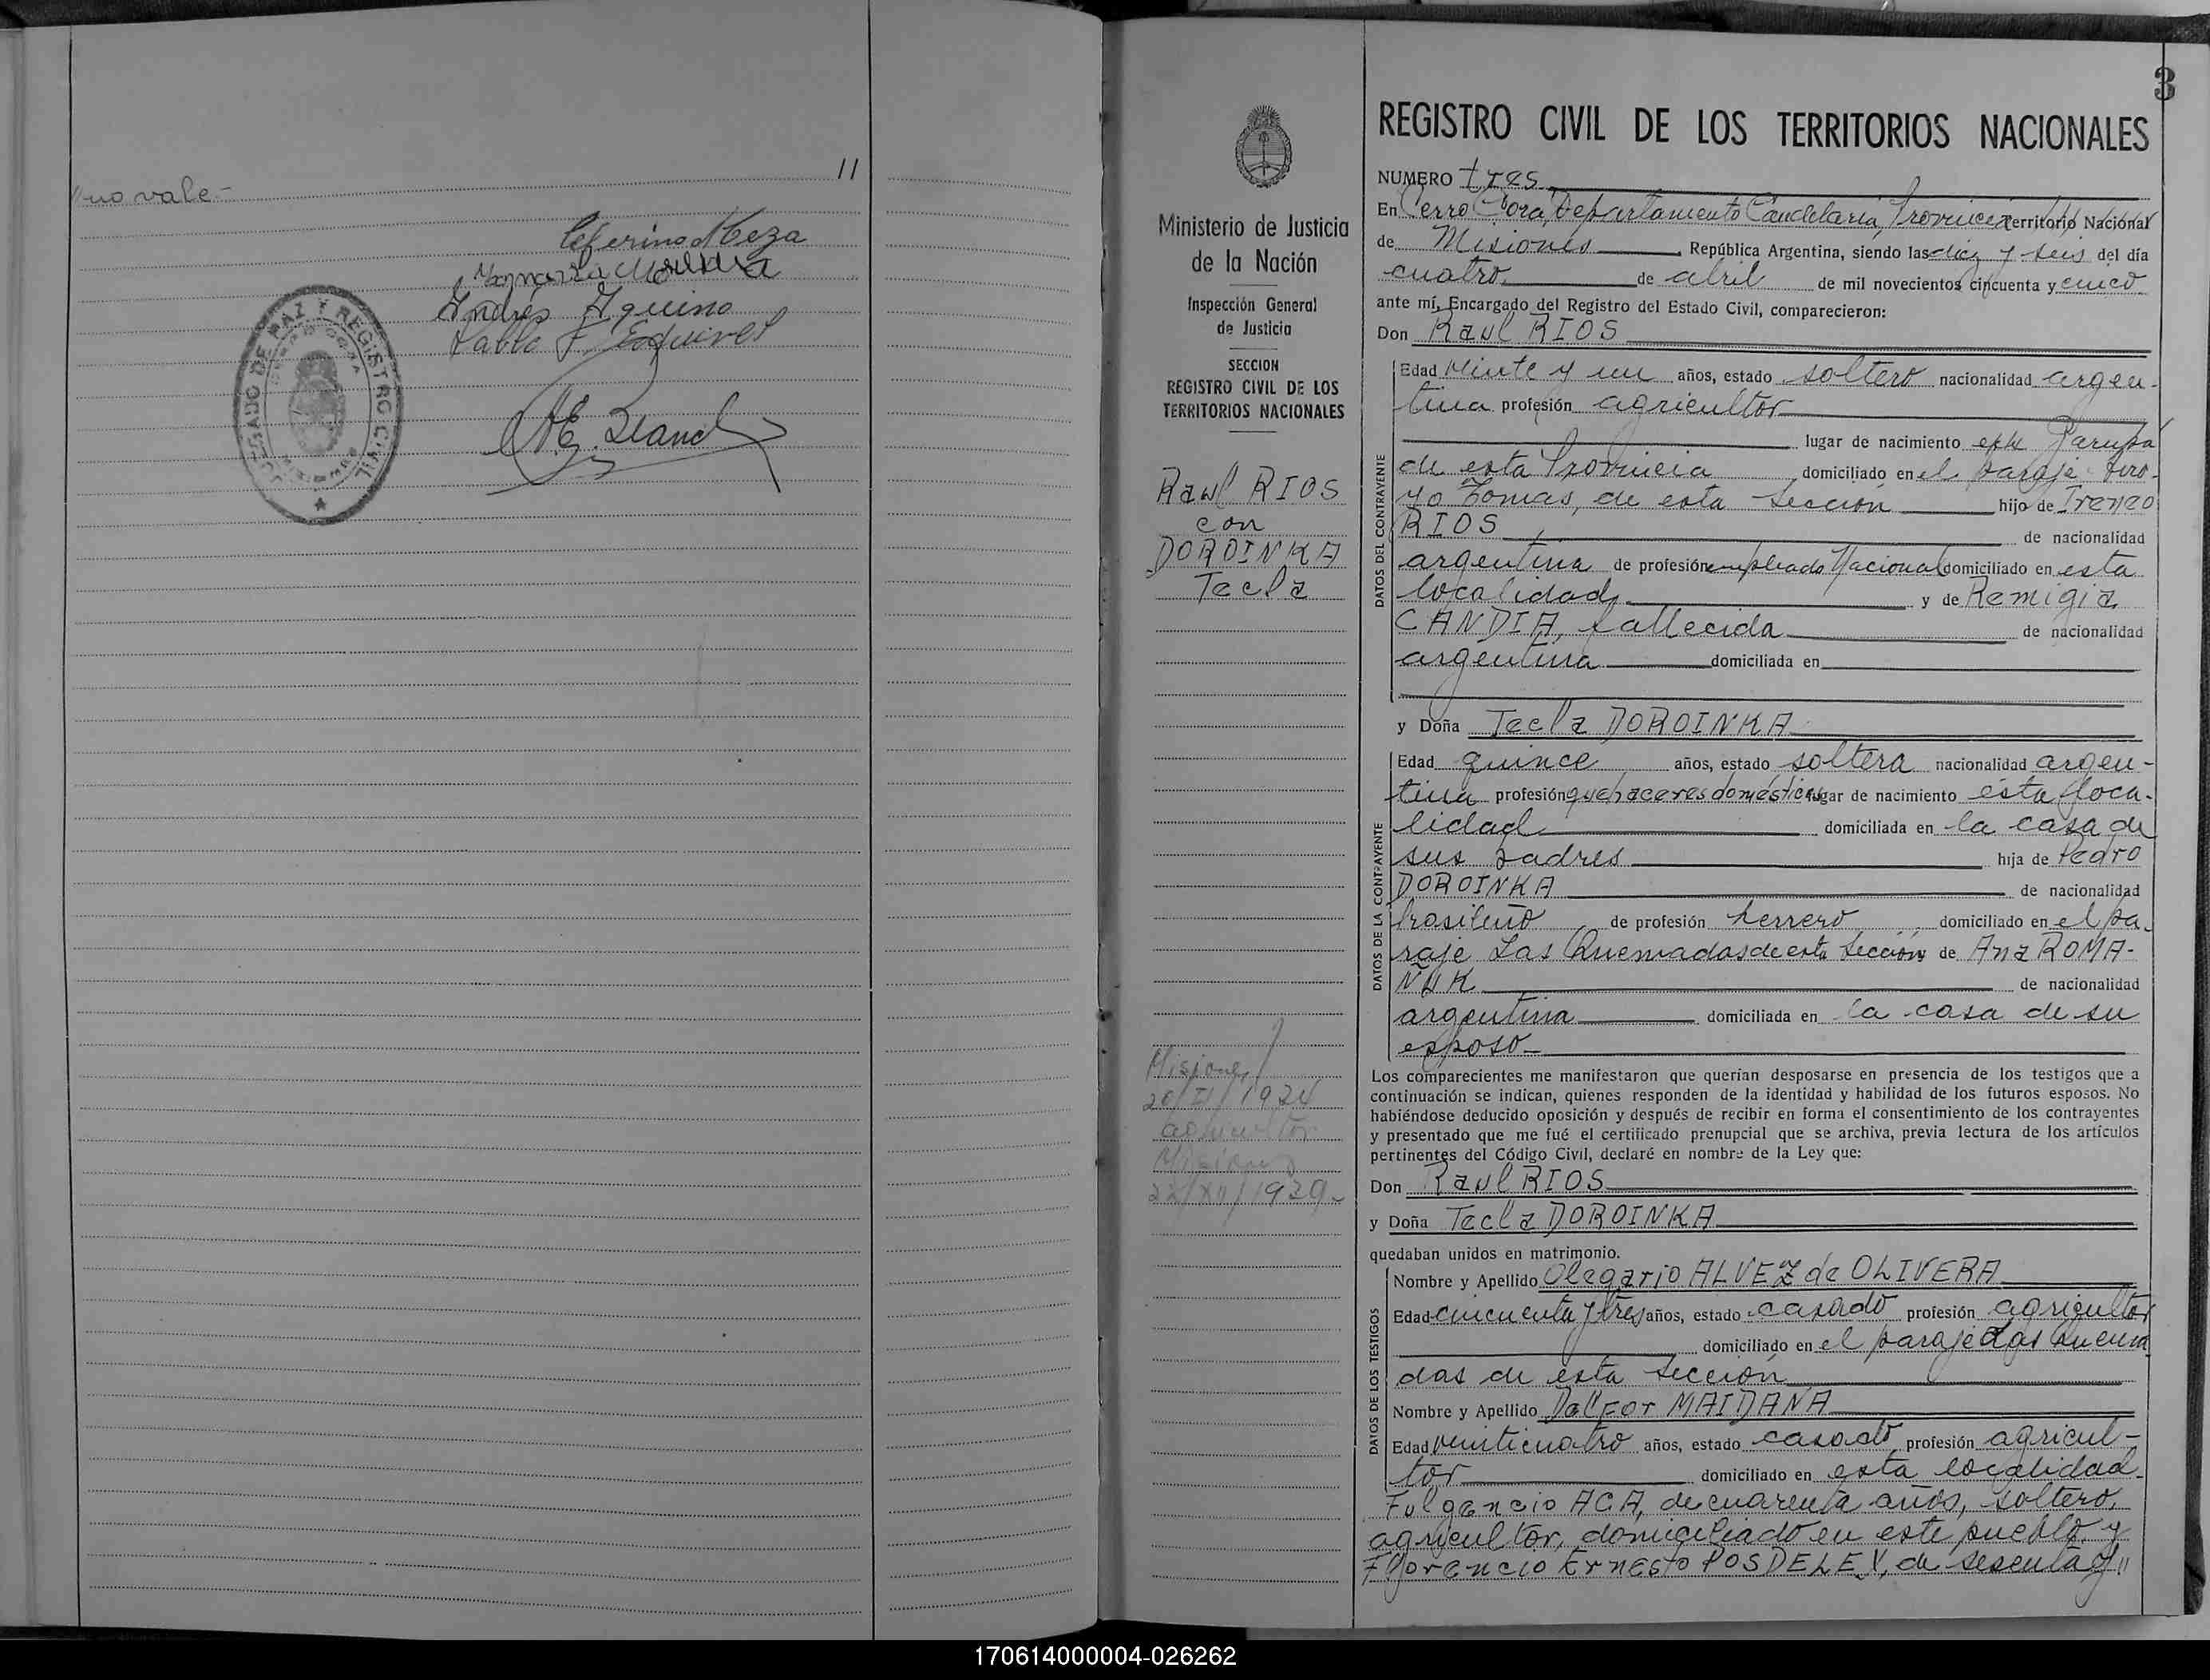 11
"no vale-
Ceferino Meza
Andrés Aquino
Pablo F. Esquivel
JUZGADO DE PAZ Y REGISTRO CIVIL
MISIONES
3
REGISTRO CIVIL DE LOS TERRITORIOS NACIONALES
Ministerio de Justicia
de la Nación
Inspección General
de Justicia
SECCION
REGISTRO CIVIL DE LOS
TERRITORIOS NACIONALES
Raul RIOS
con
DOROINKA
Tecla
Misiones
20/II/1934
agricultor
Misiones
22/XII/1939-
NUMERO tres
En Cerro Corá, Departamento Candelaria, Provincia Territorio Nacional
de Misiones, República Argentina, siendo las diez y seis del día
cuatro de abril de mil novecientos cincuenta y cinco
ante mí, Encargado del Registro del Estado Civil, comparecieron:
Don Raul RIOS
DATOS DEL CONTRAYENTE
Edad veinte y un años, estado soltero nacionalidad argen-
tina profesión agricultor
lugar de nacimiento Garupá
de esta Provincia domiciliado en el paraje Arro-
yo Tomas, de esta Sección hijo de Ireneo
RIOS de nacionalidad
argentina de profesión empleado Nacional domiciliado en esta
localidad y de Remigia
CANDIA, fallecida de nacionalidad
argentina domiciliada en
y Doña Tecla DOROINKA
DATOS DE LA CONTRAYENTE
Edad quince años, estado soltera nacionalidad argen-
tina profesión quehaceres domésticos lugar de nacimiento esta loca-
lidad domiciliada en la casa de
sus padres hija de Pedro
DOROINKA de nacionalidad
brasileño de profesión herrero domiciliado en el pa-
raje Las Quemadas de esta Sección y de Ana ROMA-
ÑUK de nacionalidad
argentina domiciliada en la casa de su
esposo-
Los comparecientes me manifestaron que querían desposarse en presencia de los testigos que a
continuación se indican, quienes responden de la identidad y habilidad de los futuros esposos. No
habiéndose deducido oposición y después de recibir en forma el consentimiento de los contrayentes
y presentado que me fué el certificado prenupcial que se archiva, previa lectura de los artículos
pertinentes del Código Civil, declaré en nombre de la Ley que:
Don Raul RIOS
y Doña Tecla DOROINKA
quedaban unidos en matrimonio.
DATOS DE LOS TESTIGOS
Nombre y Apellido Olegario ALVEZ de OLIVERA
Edad cincuenta y tres años, estado casado profesión agricultor
domiciliado en el paraje Las Quema
das de esta Sección
Nombre y Apellido Dalfor MAIDANA
Edad veinticuatro años, estado casado profesión agricul-
tor domiciliado en esta localidad.
Fulgencio ACA, de cuarenta años, soltero,
agricultor, domiciliado en este pueblo y
Florencio Ernesto POSDELEY, de sesenta y "
170614000004-026262